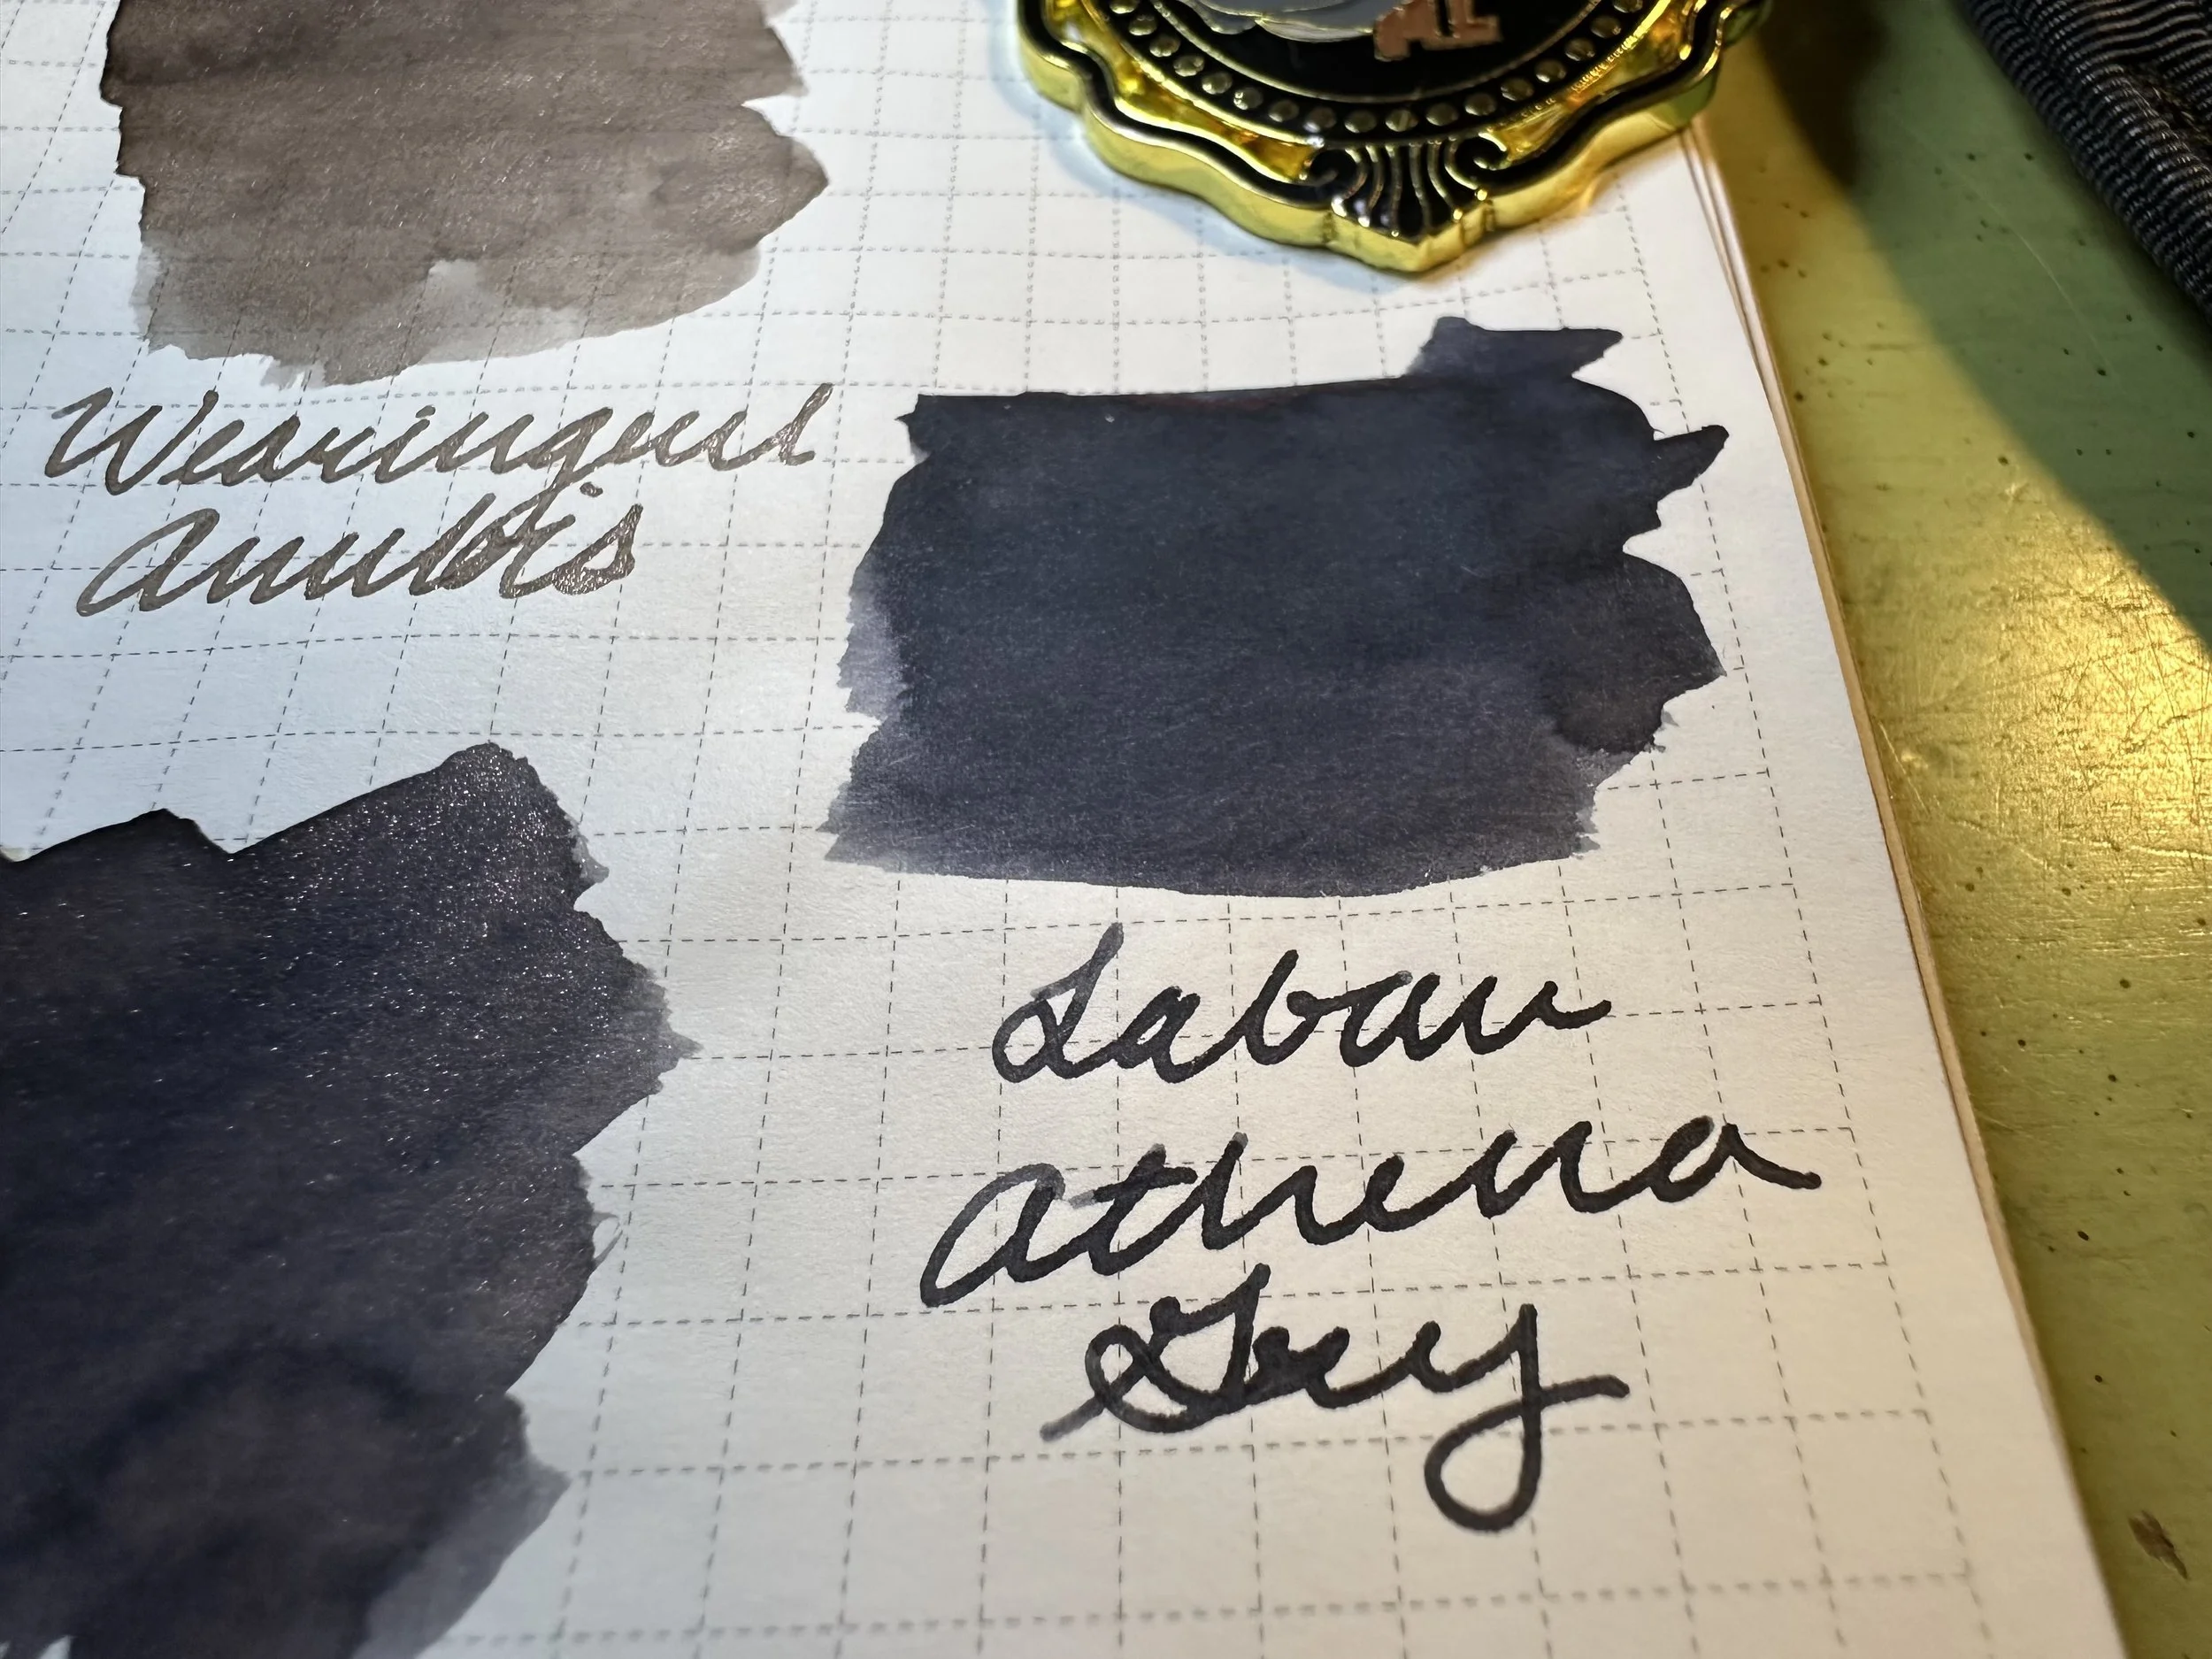 Wearingeul
Anubis
Laban
Athena
Grey